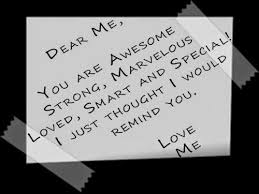 Dear Me,
You are Awesome
Strong, Marvelous
Loved, Smart and Special!
I just thought I would
remind you.
Love
Me